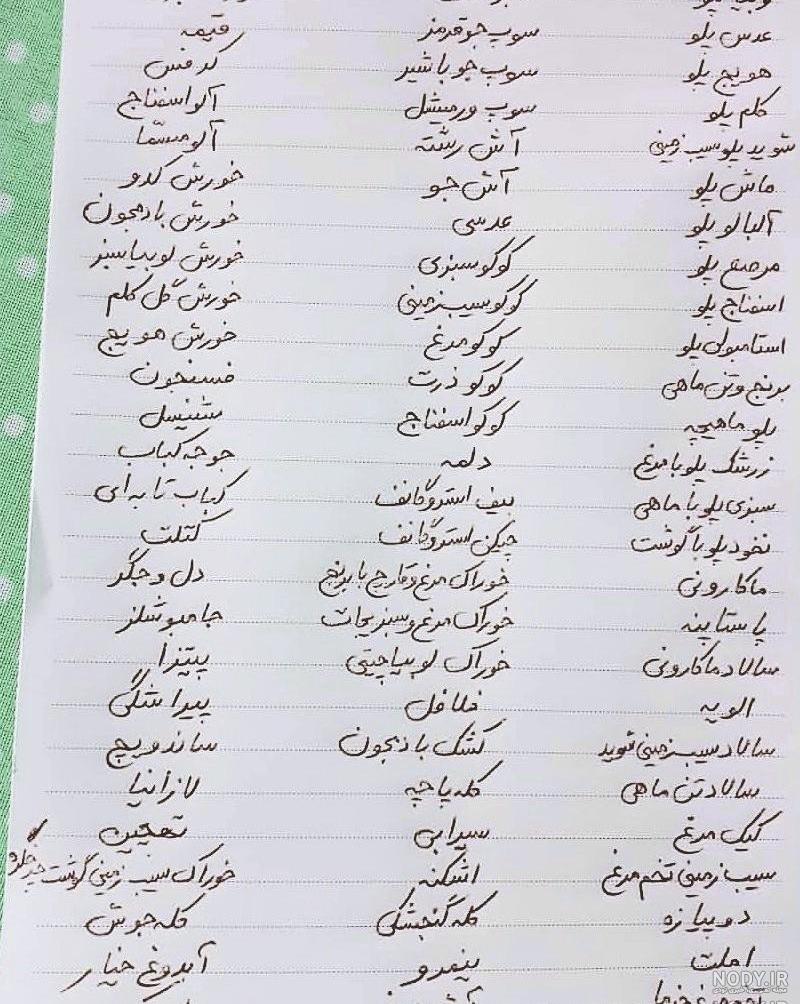 عدس پلو سوپ جو قرمز قیمه
هویج پلو سوپ جو با شیر کرفس
کلم پلو سوپ ورمیشل آلو اسفناج
شوید پلو سیب زمینی آش رشته آلو مسمّا
ماش پلو آش جو خورش کدو
آلبالو پلو عدسی خورش بادمجون
مرصع پلو کوکو سبزی خورش لوبیا سبز
اسفناج پلو کوکو سیب زمینی خورش گل کلم
استامبولی پلو کوکو مرغ خورش هویج
برنج و تن ماهی کوکو ذرت فسنجون
پلو ماهیچه کوکو اسفناج شنیسل
زرشک پلو با مرغ دلمه جوجه کباب
سبزی پلو با ماهی بیف استروگانف کباب تابه ای
نخود پلو با گوشت چیکن استروگانف کتلت
ماکارونی خوراک مرغ و قارچ با برنج دل و جگر
پاستا پنه خوراک مرغ و سبزیجات جامبو شلز
سالاد ماکارونی خوراک لوبیا چیتی پیتزا
الویه فلافل پیراشگی
سالاد سیب زمینی شوید کشک بادمجون ساندویچ
سالاد تن ماهی کله پاچه لازانیا
کیک مرغ سیرابی تهچین
سیب زمینی تخم مرغ اشکنه خوراک سیب زمینی گوشت
دوپیازه کله گنجشکی کله جوش
املت نیمرو آبدوغ خیار
NODY.IR